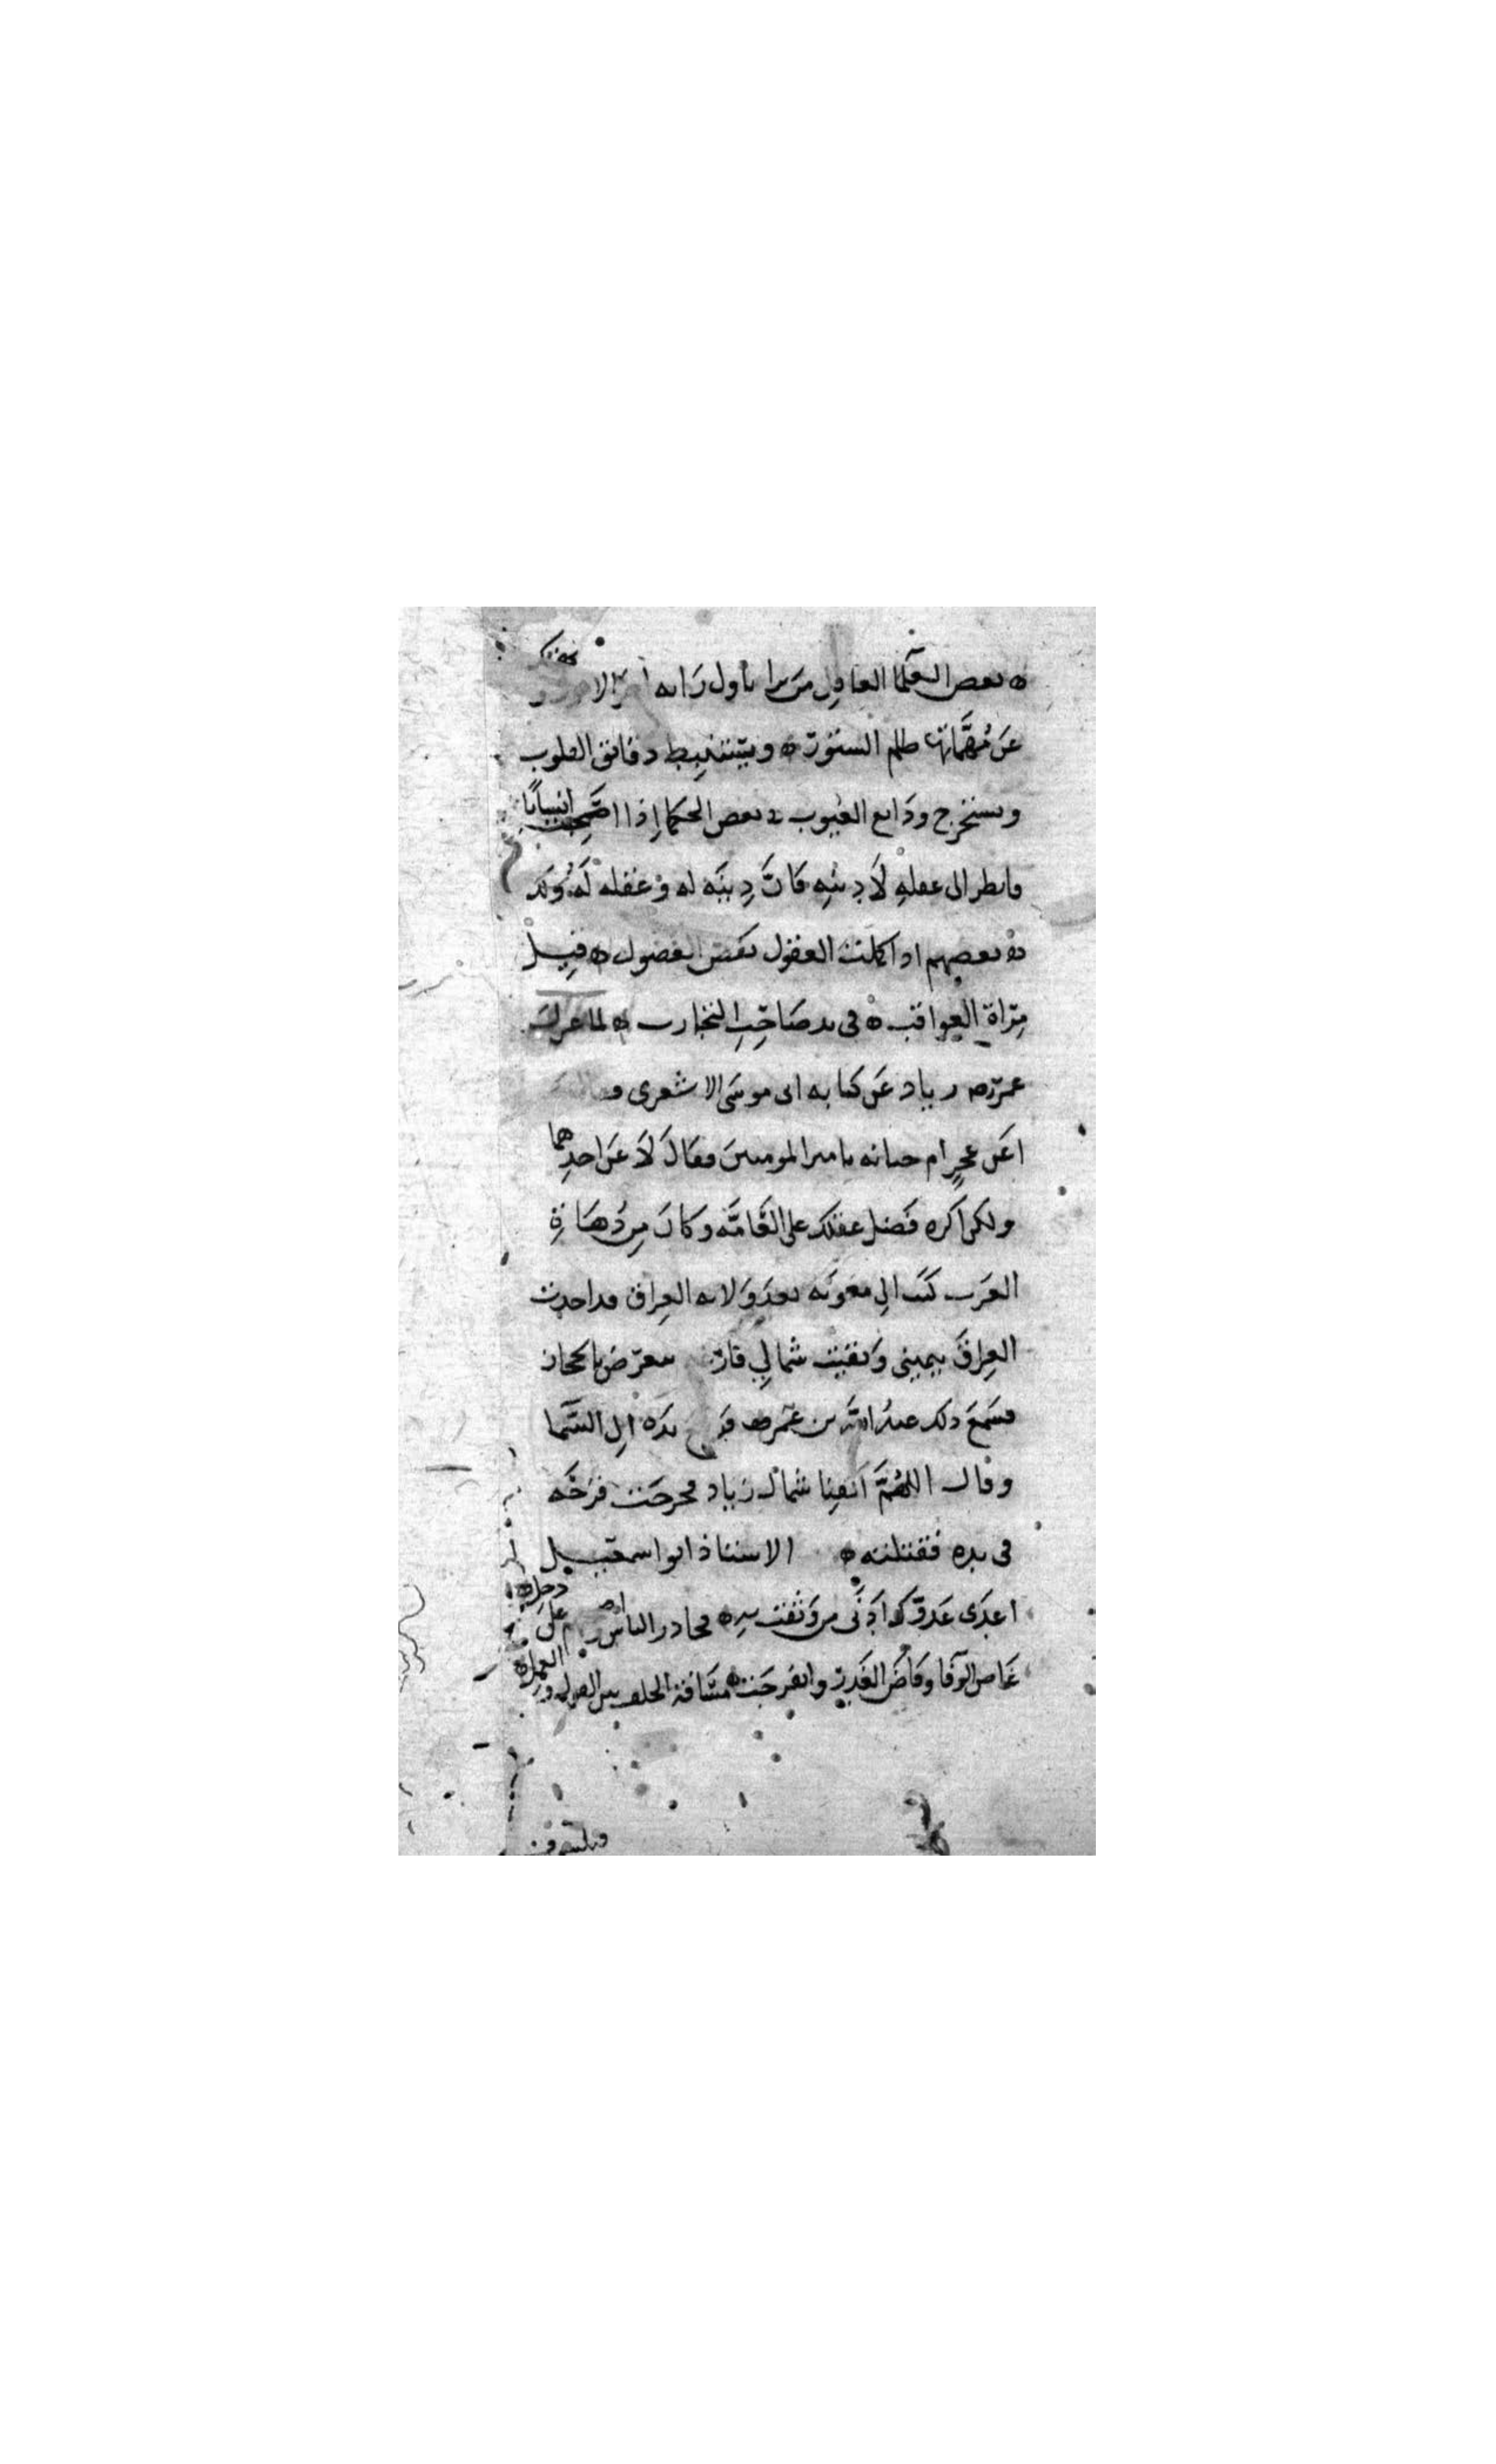 ه بعض العلما العاقل من يرا باول رايه اخر الامور
عن مُهمَّاتها ظلم الستور ه ويستنبط دقائق القلوب
ويستخرج ودايع الغيوب ه بعض الحكما إذا اصحبت انسانًا
فانظر الى عقلهِ لا دينِه فانَّ دِينَه له وعقله لَهُ ولك
ه بعضهم اذا كملت العقول نقص الفضول ه قيل
مِرآة العواقب ه فى يد صَاحِب التجارب ه لما عزل
عمر رضه زياد عَن كتابه ابى موسَى الاشعرى
اعَن عجزٍ ام خيانه يا امير المومنين فقال لا عَن احدِهما
ولكن اكره فَضل عقلك على العَامَّه وكان مِن دُهَاة
العَرب كتب الى معوية بعد وَلايه العِراق قد اخذت
العِراق بيمينى وَبقيت شمالي فارغه يعرّض بالحجاز
فسَمعَ ذلك عبدُ اللَّه بن عمر رضه فرفع يدَه الى السَّما
وقال اللهُمَّ اكفِنا شمال زياد فخرجَت قرْحَه
فى يده فقتلته ه الاستاذ ابو اسمعيل
اعدَى عَدوّك ادنَى من وَثقت به ه فحاذر الناس واصحبهم على دخل ه
غاض الوَفا وفَاضَ الغَدر وانفرجَت ه مسَافة الخلف بين القول والعمل ه